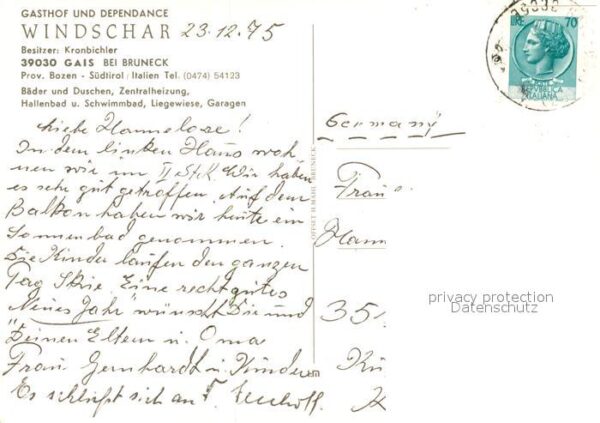 GASTHOF UND DEPENDANCE
WINDSCHAR 23.12.75
Besitzer: Kronbichler
39030 GAIS BEI BRUNECK
Prov. Bozen - Südtirol / Italien Tel. (0474) 54123
Bäder und Duschen, Zentralheizung,
Hallenbad u. Schwimmbad, Liegewiese, Garagen
Liebe Hannelore!
In dem linken Haus woh-
nen wir im II Stck. Wir haben
es sehr gut getroffen. Auf dem
Balkon haben wir heute ein
Sonnenbad genommen.
Die Kinder laufen den ganzen
Tag Skie. Eine recht gutes
"Neues Jahr" wünscht Die und
Deinen Eltern u. Oma
Frau Gernhardt u. Kinder
Es schließt sich an F.
OFFSET H. MAHL - BRUNECK
39030
LIRE 70
REPUBBLICA
ITALIANA
Germany
Frau
Hann
35
Kü
privacy protection
Datenschutz